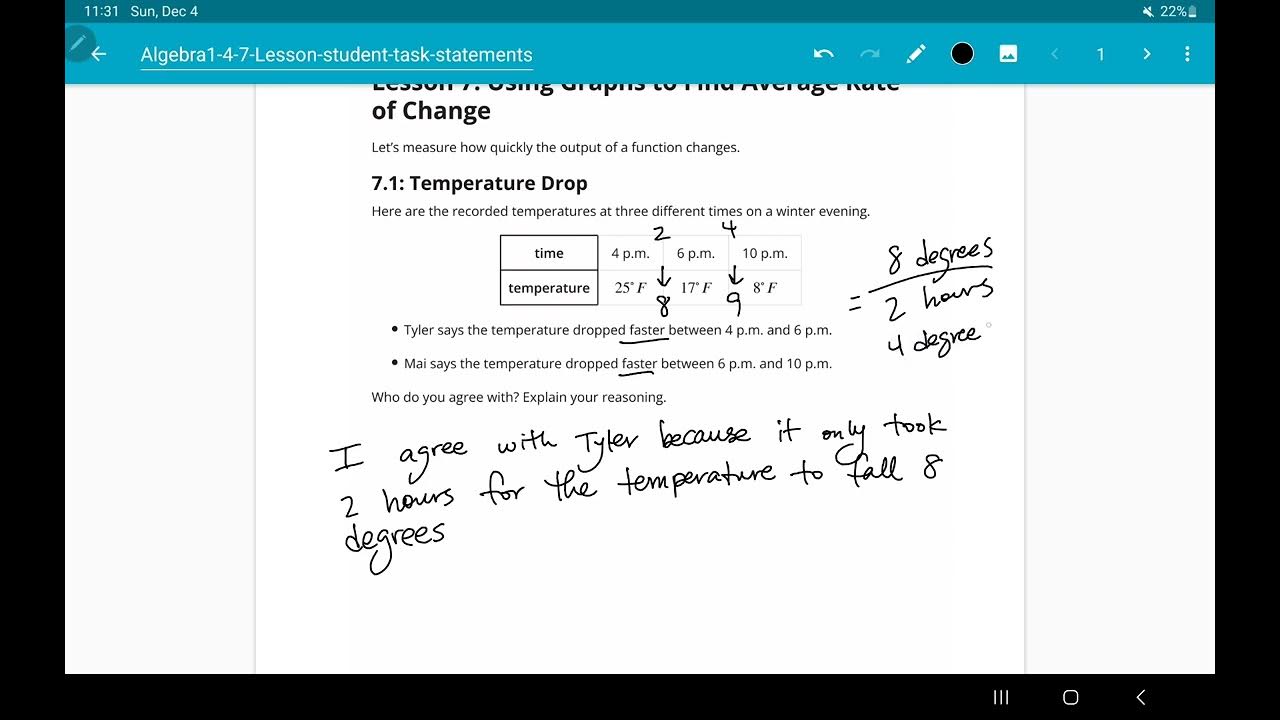 11:31 Sun, Dec 4 22%
Algebra1-4-7-Lesson-student-task-statements 1
Lesson 7: Using Graphs to Find Average Rate
of Change
Let's measure how quickly the output of a function changes.
7.1: Temperature Drop
Here are the recorded temperatures at three different times on a winter evening.
2 4
time 4 p.m. 6 p.m. 10 p.m.
temperature 25°F 17°F 8°F
8 9
= 8 degrees
2 hours
4 degree
• Tyler says the temperature dropped faster between 4 p.m. and 6 p.m.
• Mai says the temperature dropped faster between 6 p.m. and 10 p.m.
Who do you agree with? Explain your reasoning.
I agree with Tyler because it only took
2 hours for the temperature to fall 8
degrees